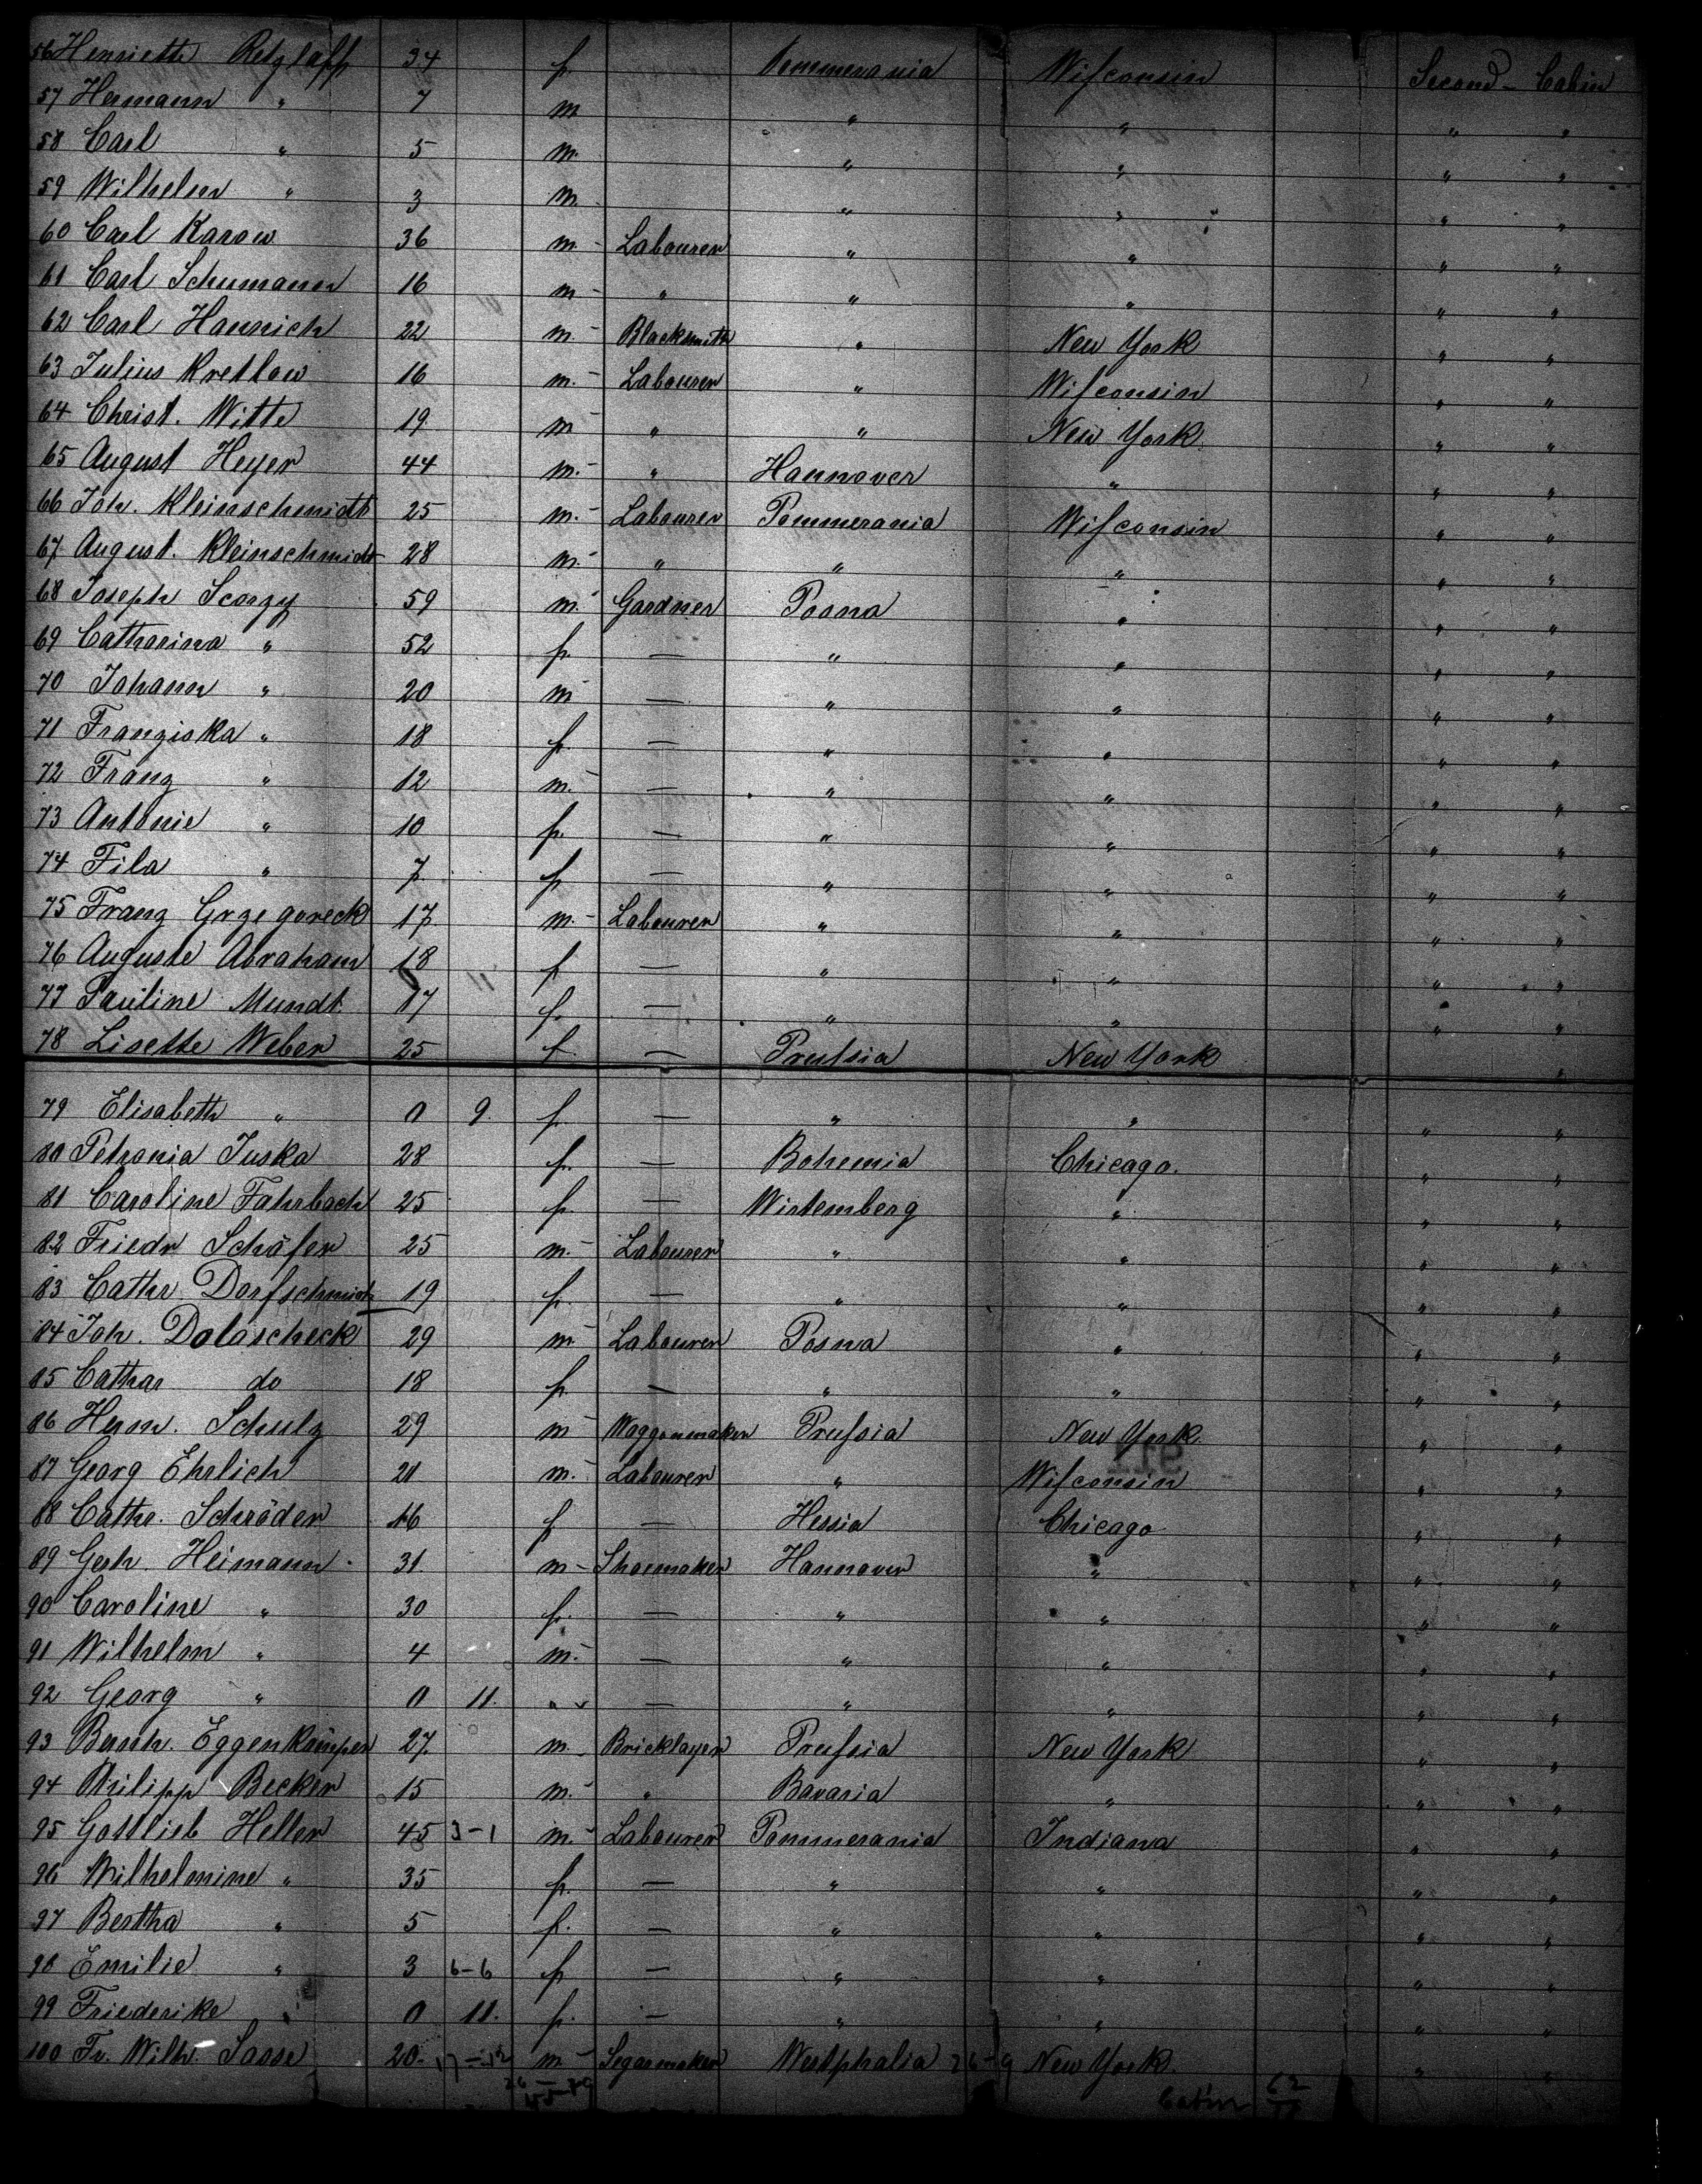 56 Henriette Retzlaff 34 f. Pommerania Wisconsin Second Cabin
57 Hermann " 7 m " " " "
58 Carl " 5 m. " " " "
59 Wilhelm " 3 m. " " " "
60 Carl Karow 36 m. Labourer " " " "
61 Carl Schumann 16 m " " " " "
62 Carl Hannich 22 m. Blacksmith " New York " "
63 Julius Kretlow 16 m. Labourer " Wisconsin " "
64 Christ. Witte 19 m " " New York " "
65 August Heyer 44 m. " Hannover " " "
66 Joh. Kleinschmidt 25 m. Labourer Pommerania Wisconsin " "
67 August. Kleinschmidt 28 m. " " " " "
68 Joseph Scorzy 59 m. Gardner Posna " " "
69 Catharina " 52 f. — " " " "
70 Johann " 20 m — " " " "
71 Franziska " 18 f. — " " " "
72 Franz " 12 m. — " " " "
73 Antonie " 10 f. — " " " "
74 Fila " 7 f — " " " "
75 Franz Grzegoreck 17 m. Labourer " " " "
76 Auguste Abraham 18 f — " " " "
77 Pauline Mundt 17 f. — " " " "
78 Lisette Weber 25 f — Prussia New York "
79 Elisabeth " 0 9 f. — " " " "
80 Petronia Juska 28 f. — Bohemia Chicago. " "
81 Caroline Fahrbach 25 f. — Wirtemberg " " "
82 Friedr Schäfer 25 m. Labourer " " " "
83 Cathr. Dorfschmidt 19 f. — " " " "
84 Joh. Daloscheck 29 m Labourer Posna " " "
85 Cathar do 18 f. — " " " "
86 Herm. Schulz 29 m Waggonmaker Prussia New York " "
87 Georg Ehrlich 21 m. Labourer " Wisconsin " "
88 Cathr. Schröder 16 f — Hessia Chicago " "
89 Gerh. Heimann 31. m Shoemaker Hannover " " "
90 Caroline " 30 f. — " " " "
91 Wilhelm " 4 m. — " " " "
92 Georg " 0 11. " — " " " "
93 Bernh. Eggenkämper 27. m. Bricklayer Prussia New York " "
94 Philipp Becker 15 m. " Bavaria " " "
95 Gottlieb Heller 45 3-1 m. Labourer Pommerania Indiana " "
96 Wilhelmine " 35 f. — " " " "
97 Bertha " 5 f. — " " " "
98 Emilie " 3 6-6 f — " " " "
99 Friederike " 0 11. f. — " " " "
100 Fr. Wilh. Sasse 20. 17-12 m Segarmaker Westphalia New York. " "
Cabin 62